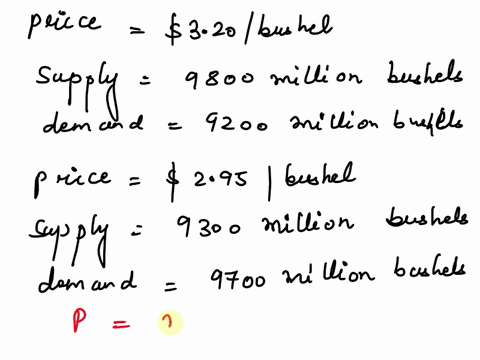 price = $3.20/bushel
Supply = 9800 million bushels
demand = 9200 million bushels
price = $2.95 | bushel
supply = 9300 million bushels
demand = 9700 million bushels
P =